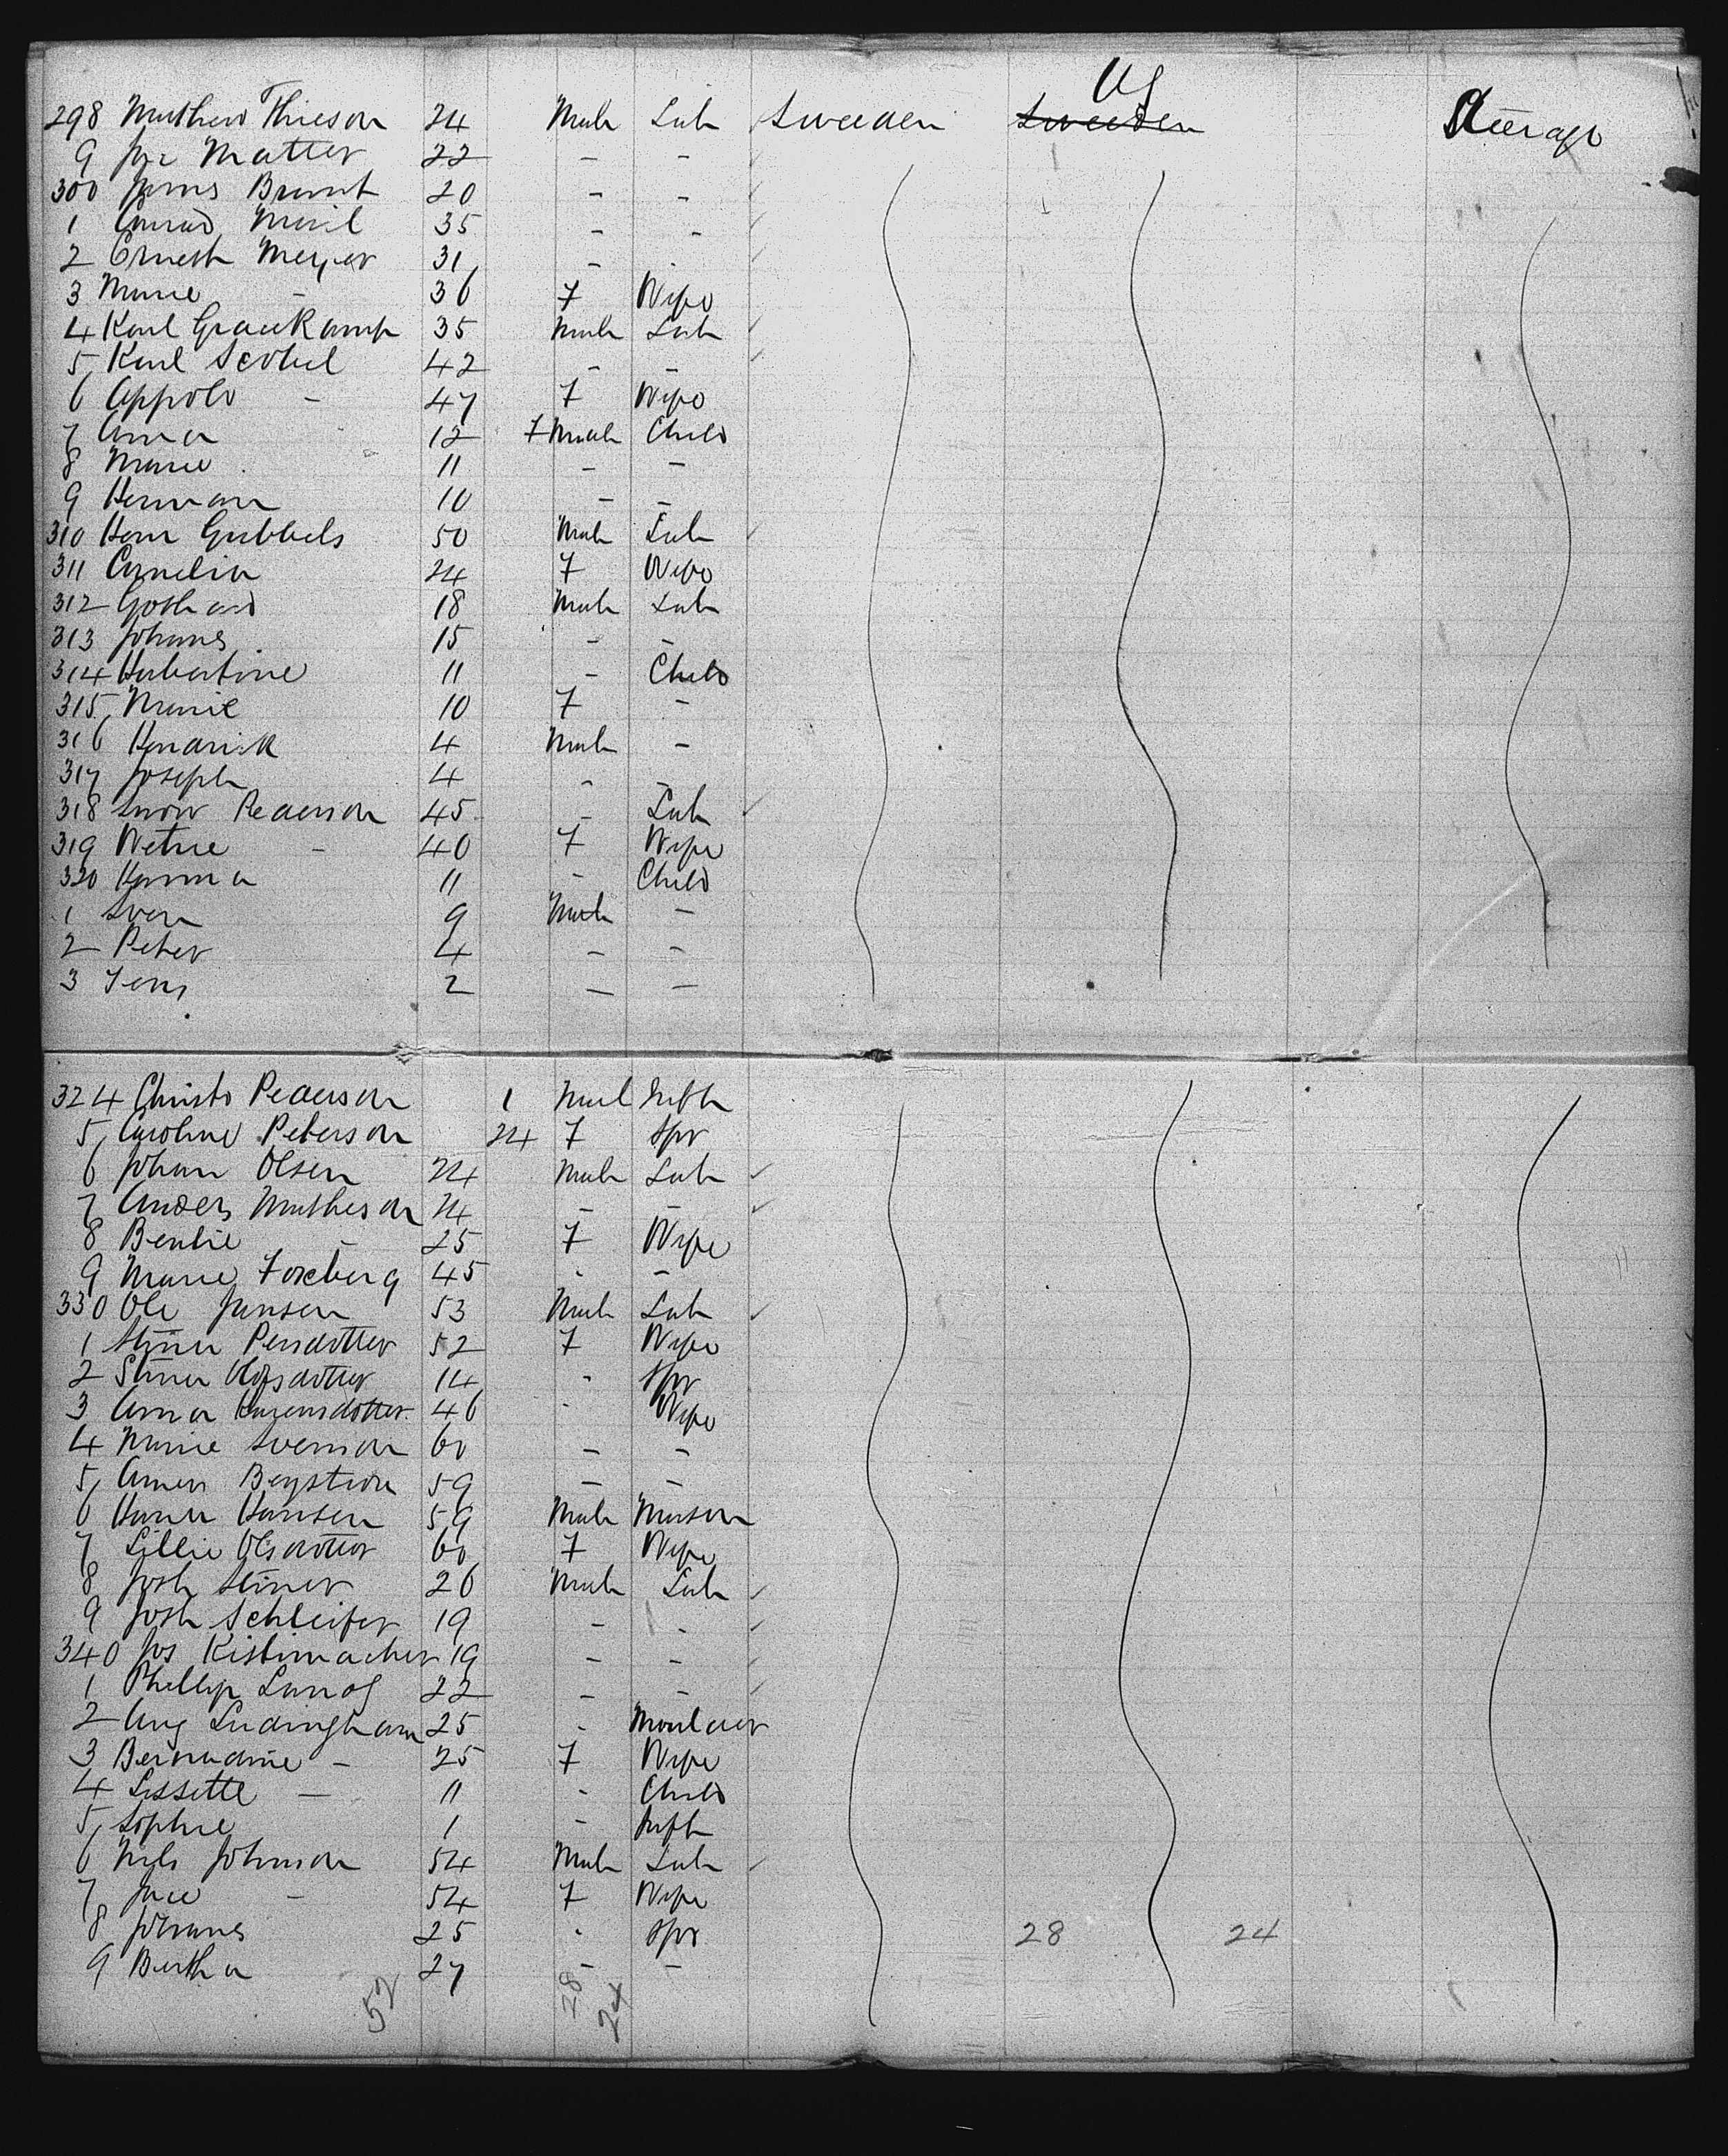 US
298 Mathew Thieson 24 Male Lab Sweden Sweden Steerage
9 Jos Matter 22 - -
300 James Brunt 20 - -
1 Conrad 35 - -
2 Ernest Meyer 31 - -
3 Marie - 36 F Wife
4 Karl Graukamp 35 Male Lab
5 Karl Scobel 42 - -
6 Appolo - 47 F Wife
7 Anna 12 F Male Child
8 Marie 11 - -
9 Herman 10 - -
310 Herm Gubbels 50 Male Lab
311 Cornelia 24 F Wife
312 Gothard 18 Male Lab
313 Johanes 15 - -
314 Hubertine 11 - Child
315 Marie 10 F -
316 Hendrik 4 Male -
317 Joseph 4 - -
318 Pederson 45 - Lab
319 - 40 F Wife
320 Hanna 11 - Child
1 Sven 9 Male -
2 Peter 4 - -
3 Jens 2 - -
324 Christo Pederson 1 Male Inft
5 Caroline Peterson 24 F Spr
6 Johan Olsen 24 Male Lab
7 Anders Matheson 24 - -
8 - 25 F Wife
9 Marie Foxberg 45 - -
330 Ole Jansen 53 Male Lab
1 Stina Persdotter 52 F Wife
2 Stina Olofsdotter 14 - Spr
3 Anna 46 - Wife
4 Marie Svenson 60 - -
5 59 - -
6 Hansen 59 Male Mason
7 Lillie Olsdotter 60 F Wife
8 Josh Stiner 26 Male Lab
9 Josh Schleifer 19 - -
340 Jos Kistimacher 19 - -
1 Phillip 22 - -
2 Aug Ludingham 25 - Moulder
3 Bernadine - 25 F Wife
4 Lissette - 11 - Child
5 Sophie 1 - Inft
6 Nils Johnson 54 Male Lab
7 - 54 F Wife
8 Johanes 25 - Spr 28 24
9 Bertha 27 - -
52 28 24